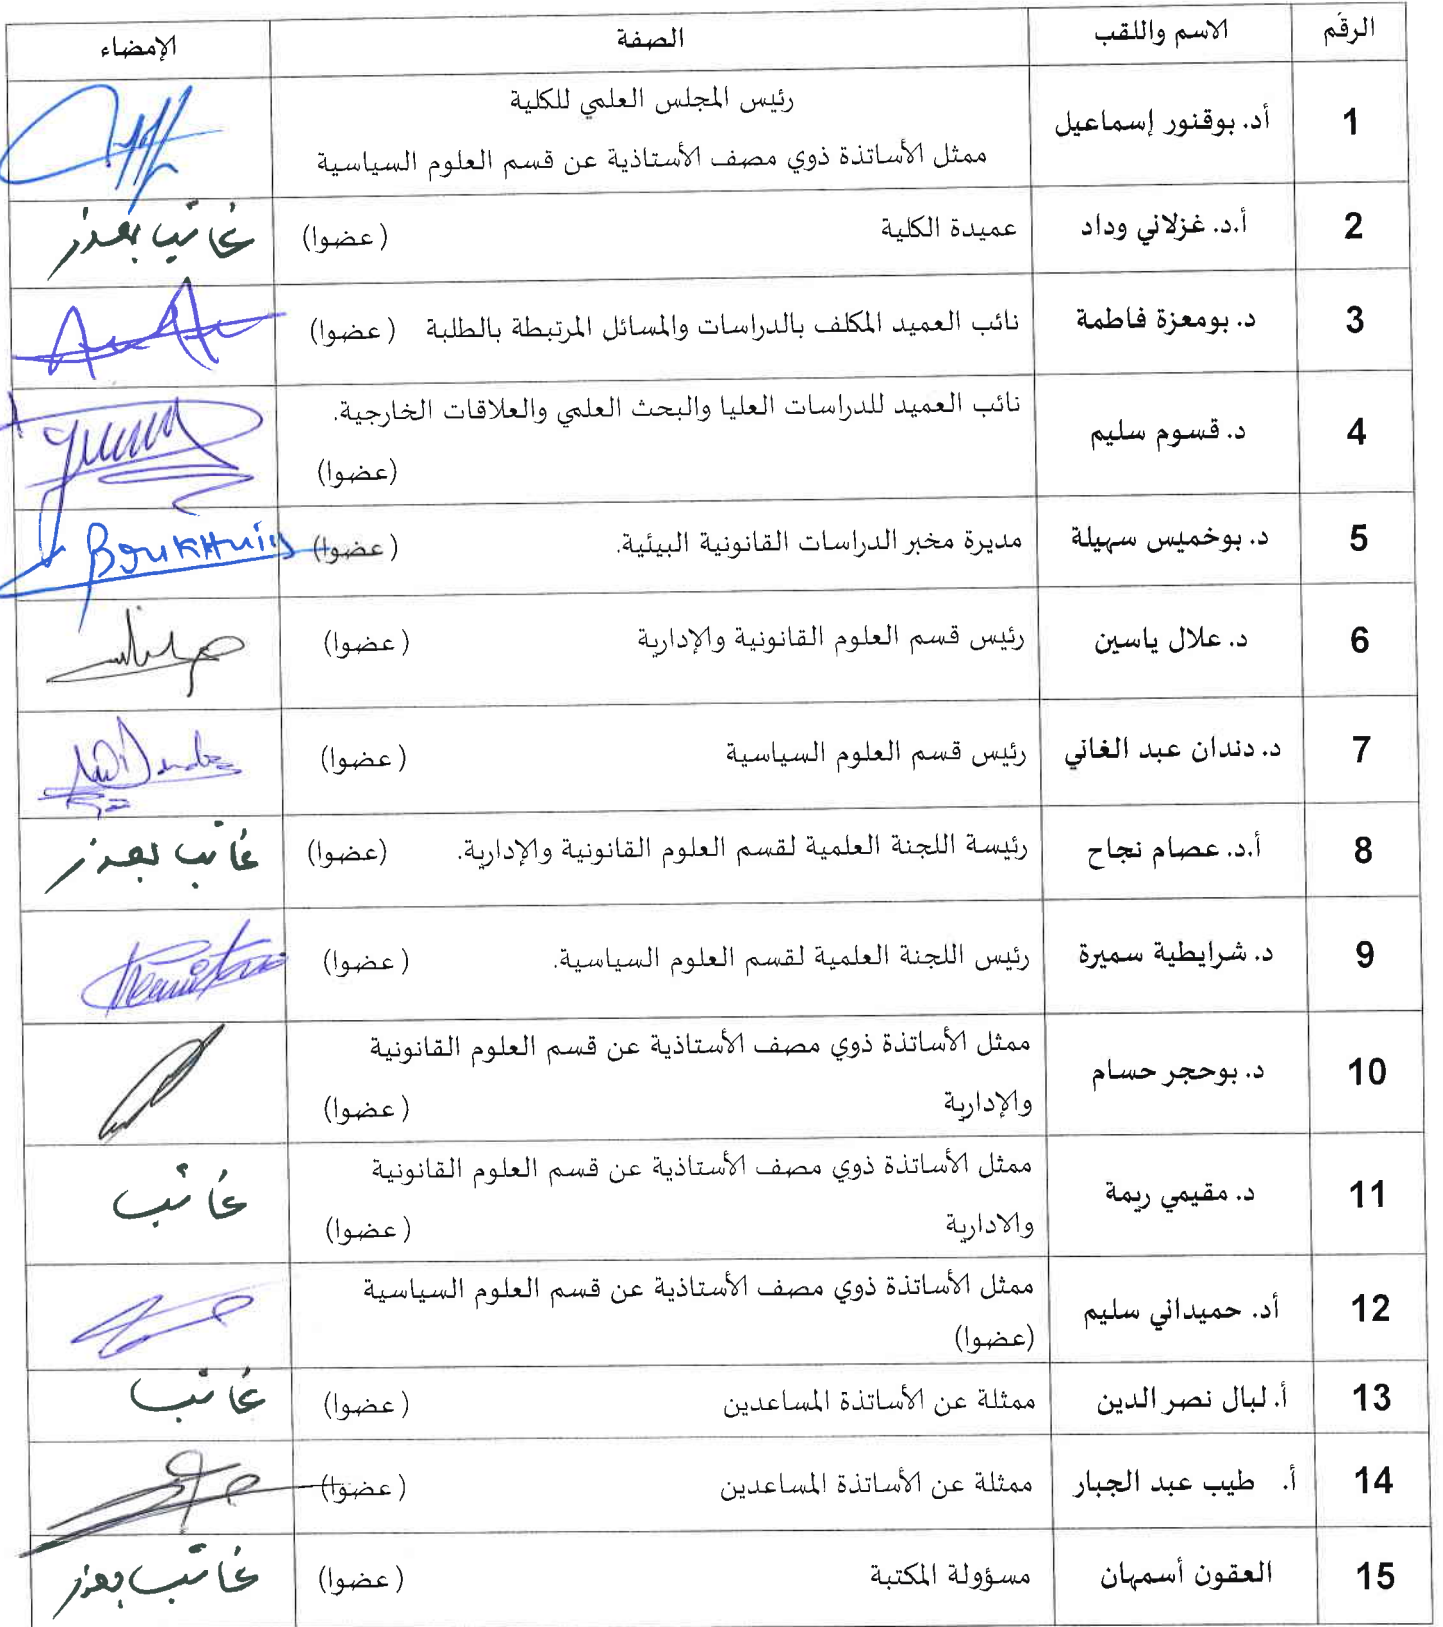 الرقم الاسم واللقب الصفة الإمضاء
1 أد. بوقنور إسماعيل رئيس المجلس العلمي للكلية
ممثل الأساتذة ذوي مصف الأستاذية عن قسم العلوم السياسية
2 أ.د. غزلاني وداد عميدة الكلية (عضوا) غائب بعذر
3 د. بومعزة فاطمة نائب العميد المكلف بالدراسات والمسائل المرتبطة بالطلبة (عضوا)
4 د. قسوم سليم نائب العميد للدراسات العليا والبحث العلمي والعلاقات الخارجية.
(عضوا)
5 د. بوخميس سهيلة مديرة مخبر الدراسات القانونية البيئية. (عضوا)
6 د. علال ياسين رئيس قسم العلوم القانونية والإدارية (عضوا)
7 د. دندان عبد الغاني رئيس قسم العلوم السياسية (عضوا)
8 أ.د. عصام نجاح رئيسة اللجنة العلمية لقسم العلوم القانونية والإدارية. (عضوا) غائب بعذر
9 د. شرايطية سميرة رئيس اللجنة العلمية لقسم العلوم السياسية. (عضوا)
10 د. بوحجر حسام ممثل الأساتذة ذوي مصف الأستاذية عن قسم العلوم القانونية
والإدارية (عضوا)
11 د. مقيمي ريمة ممثل الأساتذة ذوي مصف الأستاذية عن قسم العلوم القانونية
والادارية (عضوا) غائب
12 أد. حميداني سليم ممثل الأساتذة ذوي مصف الأستاذية عن قسم العلوم السياسية
(عضوا)
13 أ. لبال نصر الدين ممثلة عن الأساتذة المساعدين (عضوا) غائب
14 أ. طيب عبد الجبار ممثلة عن الأساتذة المساعدين (عضوا)
15 العقون أسمهان مسؤولة المكتبة (عضوا) غائب بعذر